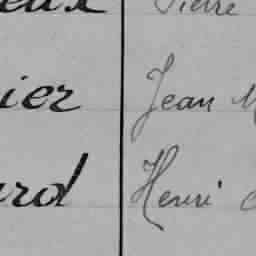 eux Pierre
ier Jean M
ard Henri